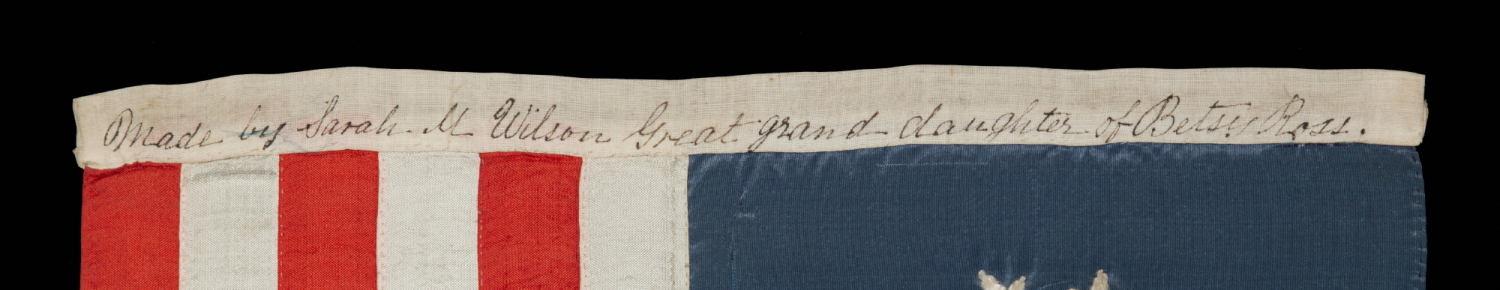 Made by Sarah M Wilson Great grand daughter of Betsy Ross.